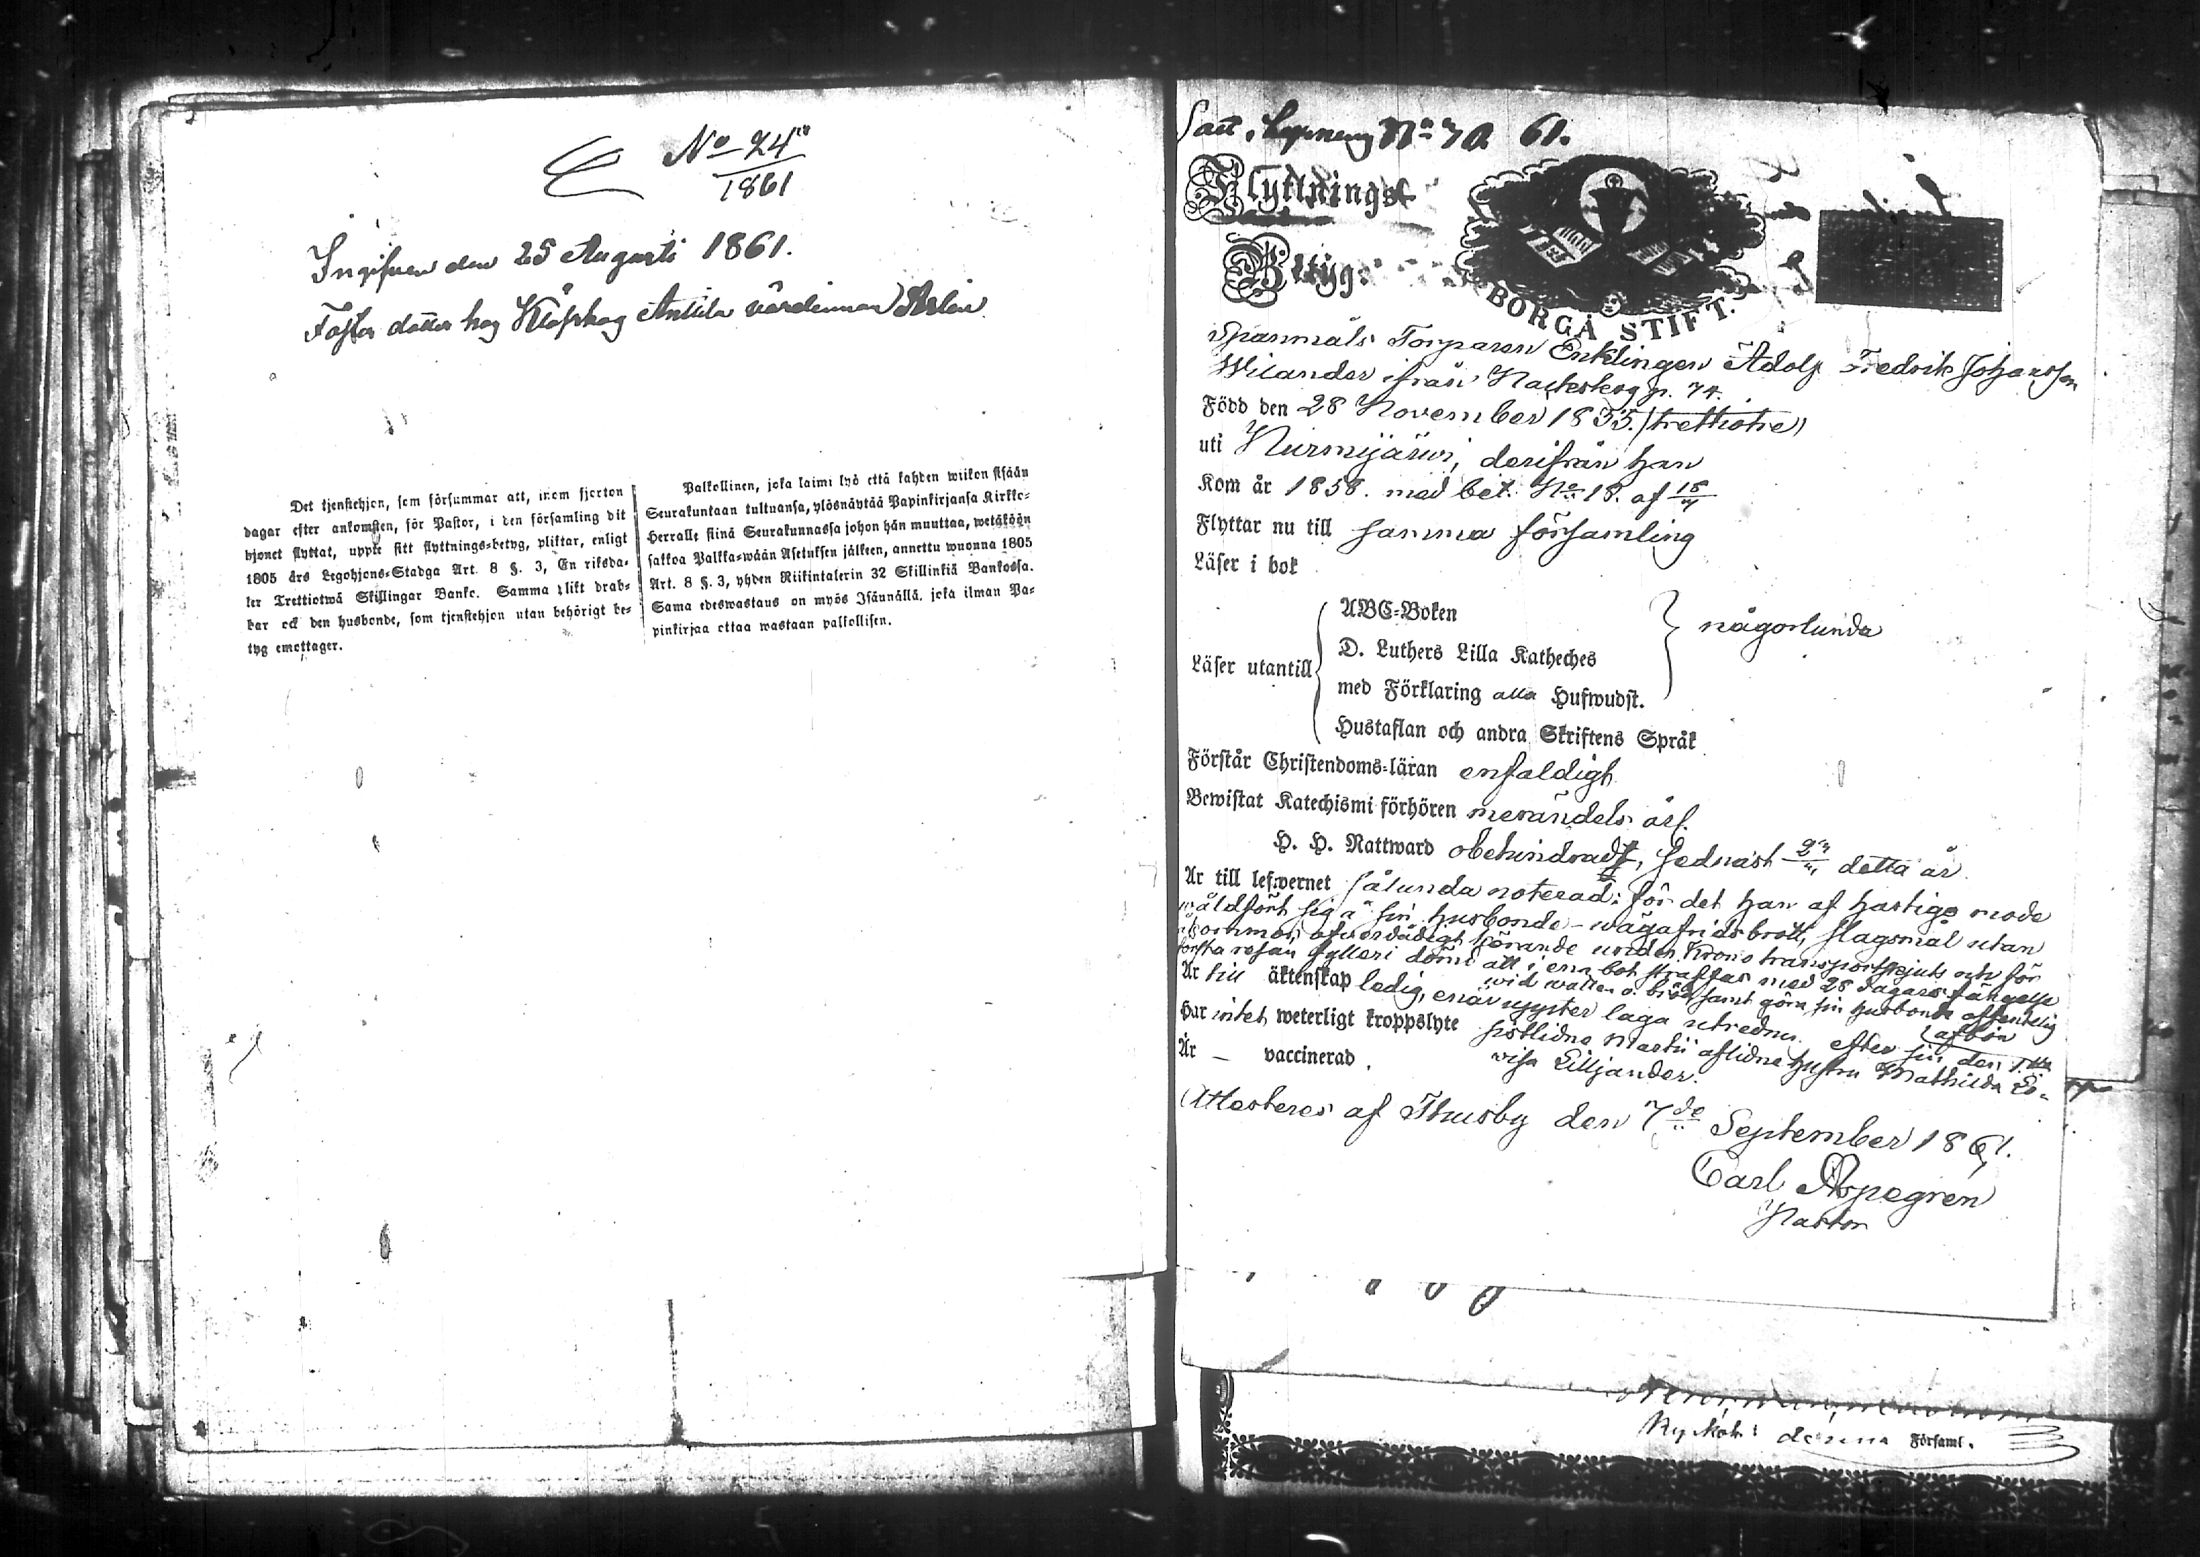 No 24
1861
Ingifven den 25 Augusti 1861.
Foster dotter hos Klöfskog Anttila värdinnan
Det tjenstehjon, som försummar att, inom fjorton
dagar efter ankomsten, för Pastor, i den församling dit
hjonet flyttat, uppte sitt flyttnings-betyg, pliktar, enligt
1805 års Legohjons-Stadga Art. 8 §. 3, En riksda-
ler Trettiotwå Skillingar Banko. Samma plikt drab-
bar ock den husbonde, som tjenstehjon utan behörigt be-
tyg emottager.
Palkollinen, joka laimi lyö että kahden wiikon sisään
Seurakuntaan tultuansa, ylösnäyttää Papinkirjansa Kirkko-
Herralle siinä Seurakunnassa johon hän muuttaa, wetäköön
sakkoa Palkka-wään Asetuksen jälkeen, annettu wuonna 1805
Art. 8 §. 3, yhden Riikintalerin 32 Skillinkiä Bankossa.
Sama edeswastaus on myös Isännällä, joka ilman Pa-
pinkirjaa ottaa wastaan palkollisen.
No 70. 61.
Flyttnings-
Betyg.
BORGÅ STIFT.
Spanmåls Torparen Enklingen Adolf Fredrik Johansson
Wilander ifrån p. 74.
Född den 28 November 1833. (trettiotre)
uti Nurmijärwi, derifrån han
Kom år 1858. med bet. No 18. af
Flyttar nu till samma församling
Läser i bok
Läser utantill
ABC-Boken
D. Luthers Lilla Katheches
med Förklaring alla Hufwudst.
Hustaflan och andra Skriftens Språk
någorlunda
Förstår Christendoms-läran enfaldigt
Bewistat Katechismi förhören merändels årl.
H. H. Nattward obehindradt, sednast detta år.
Är till lefwernet sålunda noterad: för det han af hastigo mode
wåldfört sig å sin husbonde - wägafridsbrott, slagsmål utan
åkommor, öfwerdådigt körande under Krono transportskjuts och för
första resan fylleri dömd att i ena bot straffas med 28 dagars fängelse
wid watten o. bröd samt göra sin husbonde offentelig
afbön
Är till äktenskap ledig, enär uppter laga utredning efter sin den 1sta
Har intet weterligt kroppslyte sistlidne Martii aflidne hustru Mathilda Lo-
visa Lilljander.
Är – vaccinerad.
Attesteras af Thusby den 7de September 1861.
Carl Aspegrén
Pastor
denna Församl.